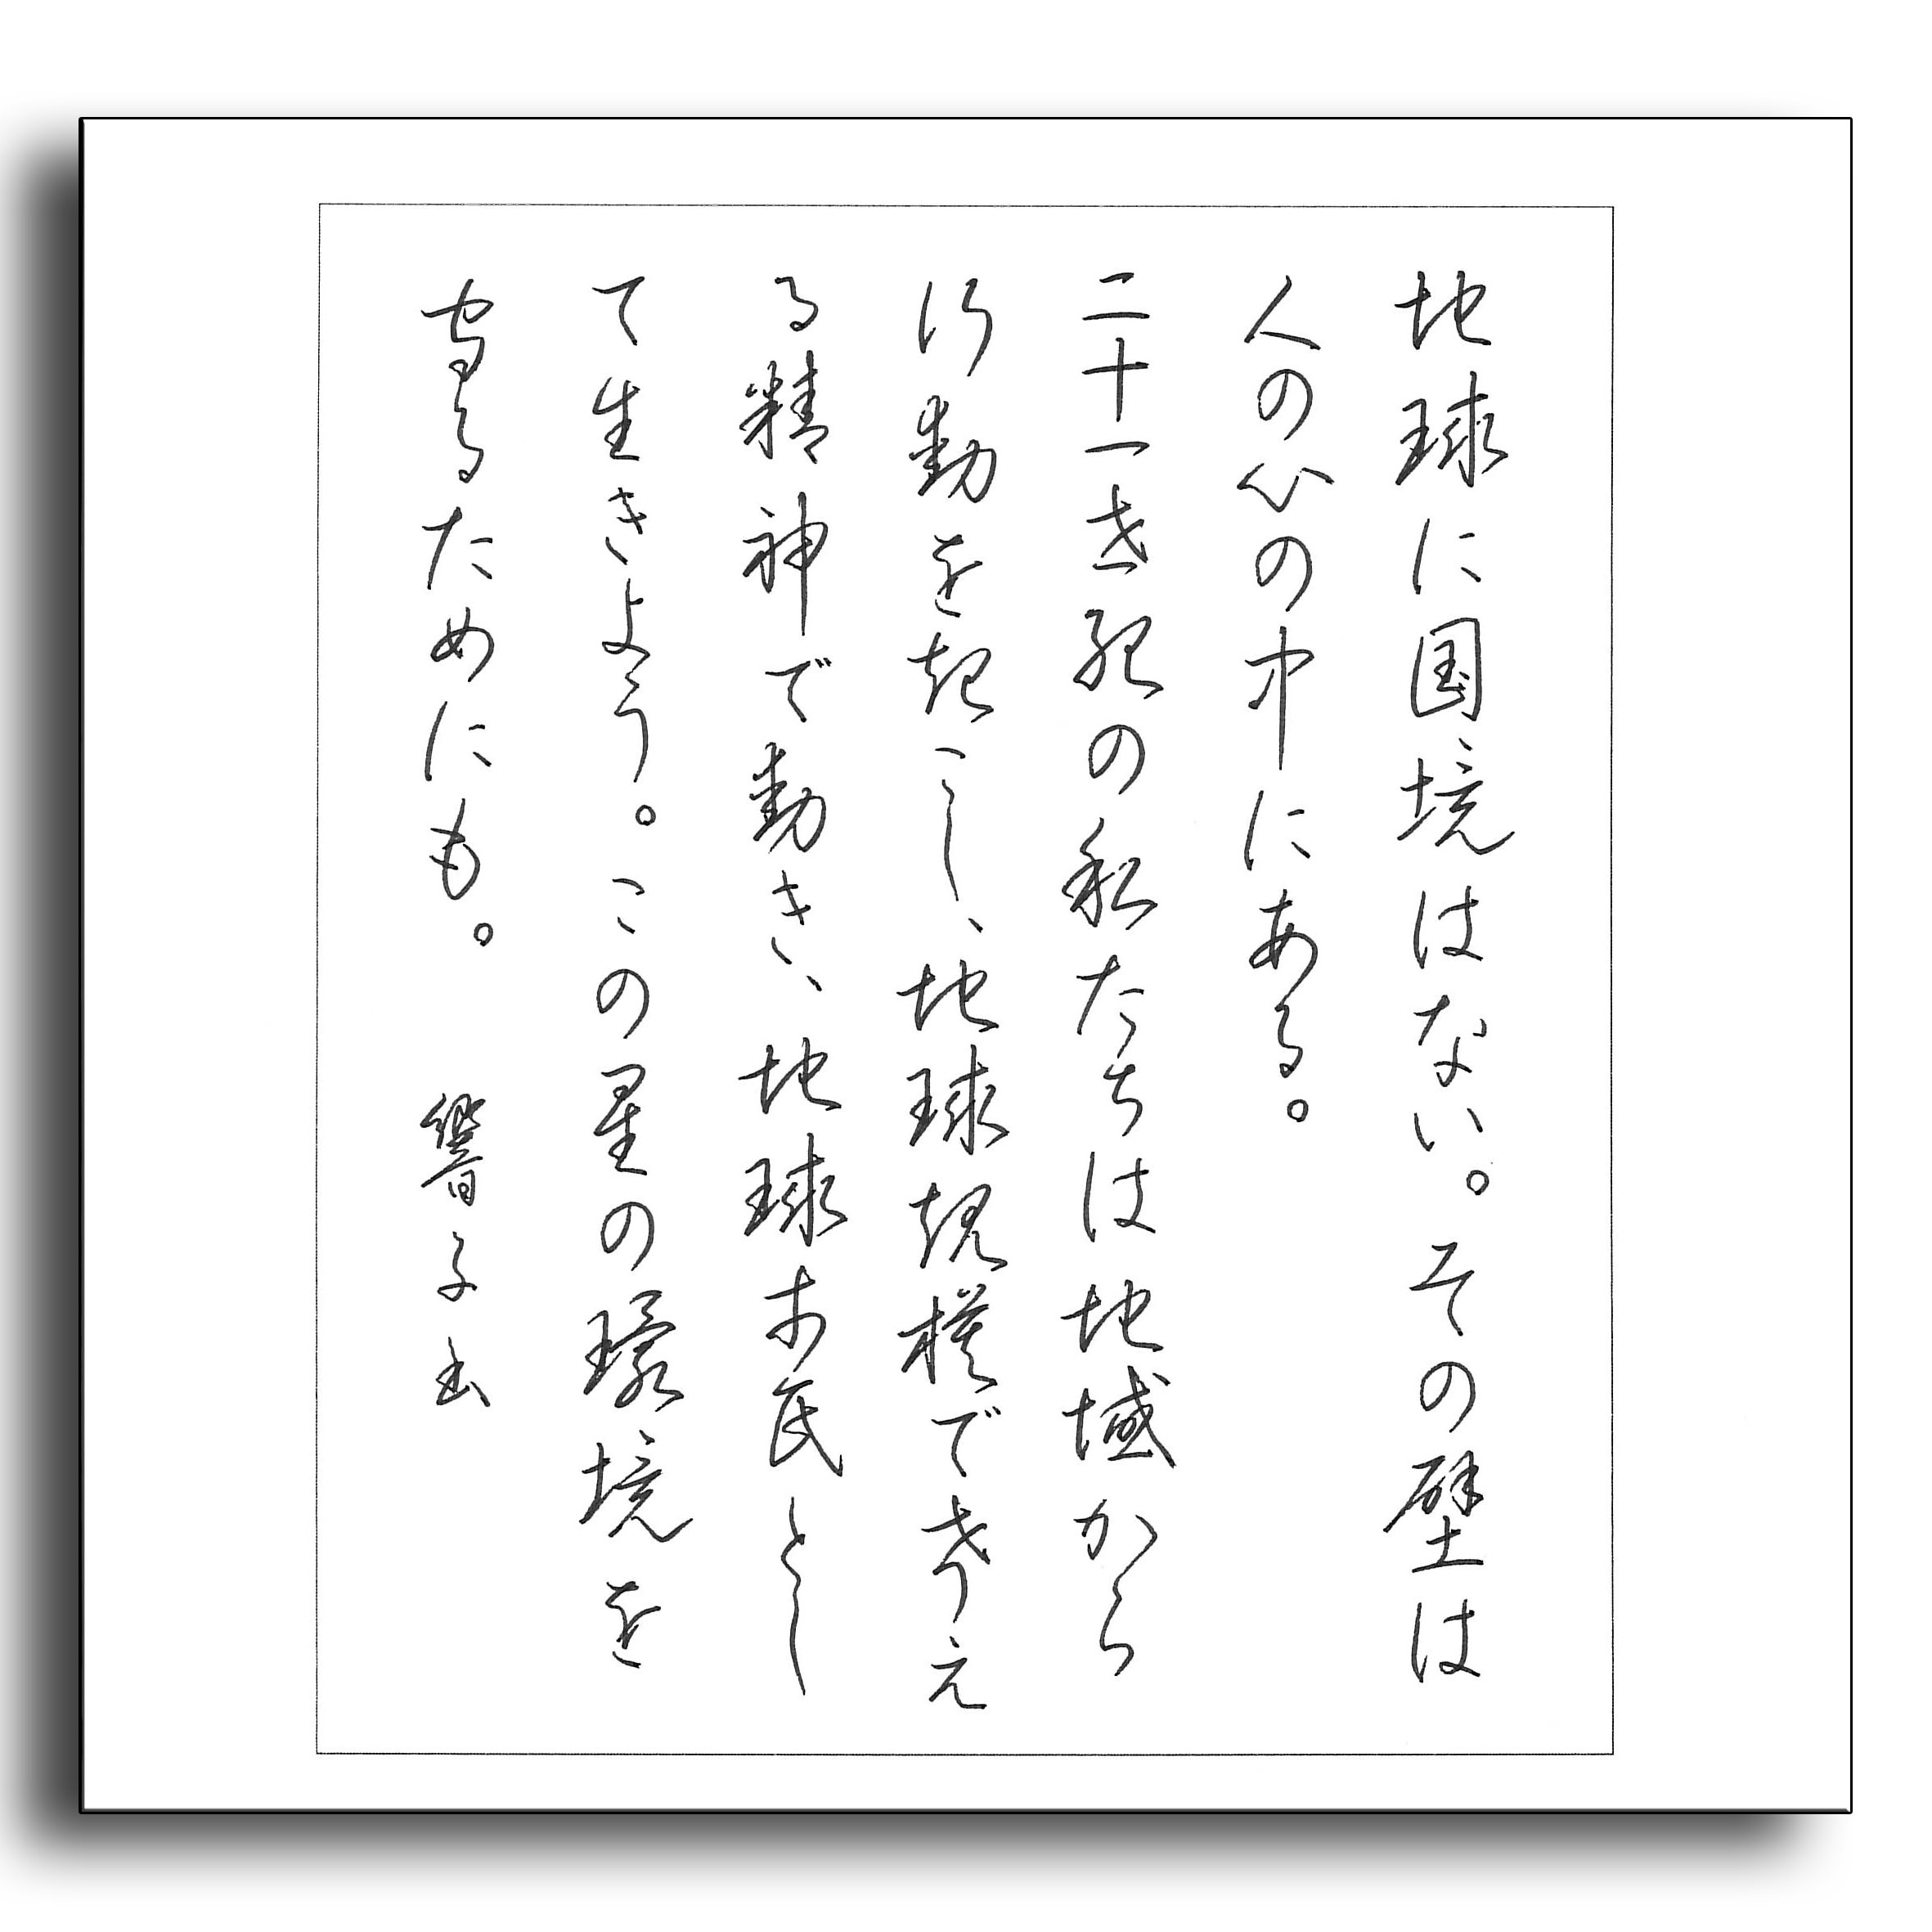 地球に国境はない。その壁は
人の心の中にある。
二十一世紀の私たちは地域から
行動を起こし、地球規模で考え
る精神で動き、地球市民とし
て生きよう。この星の環境を
守るためにも。 響子書